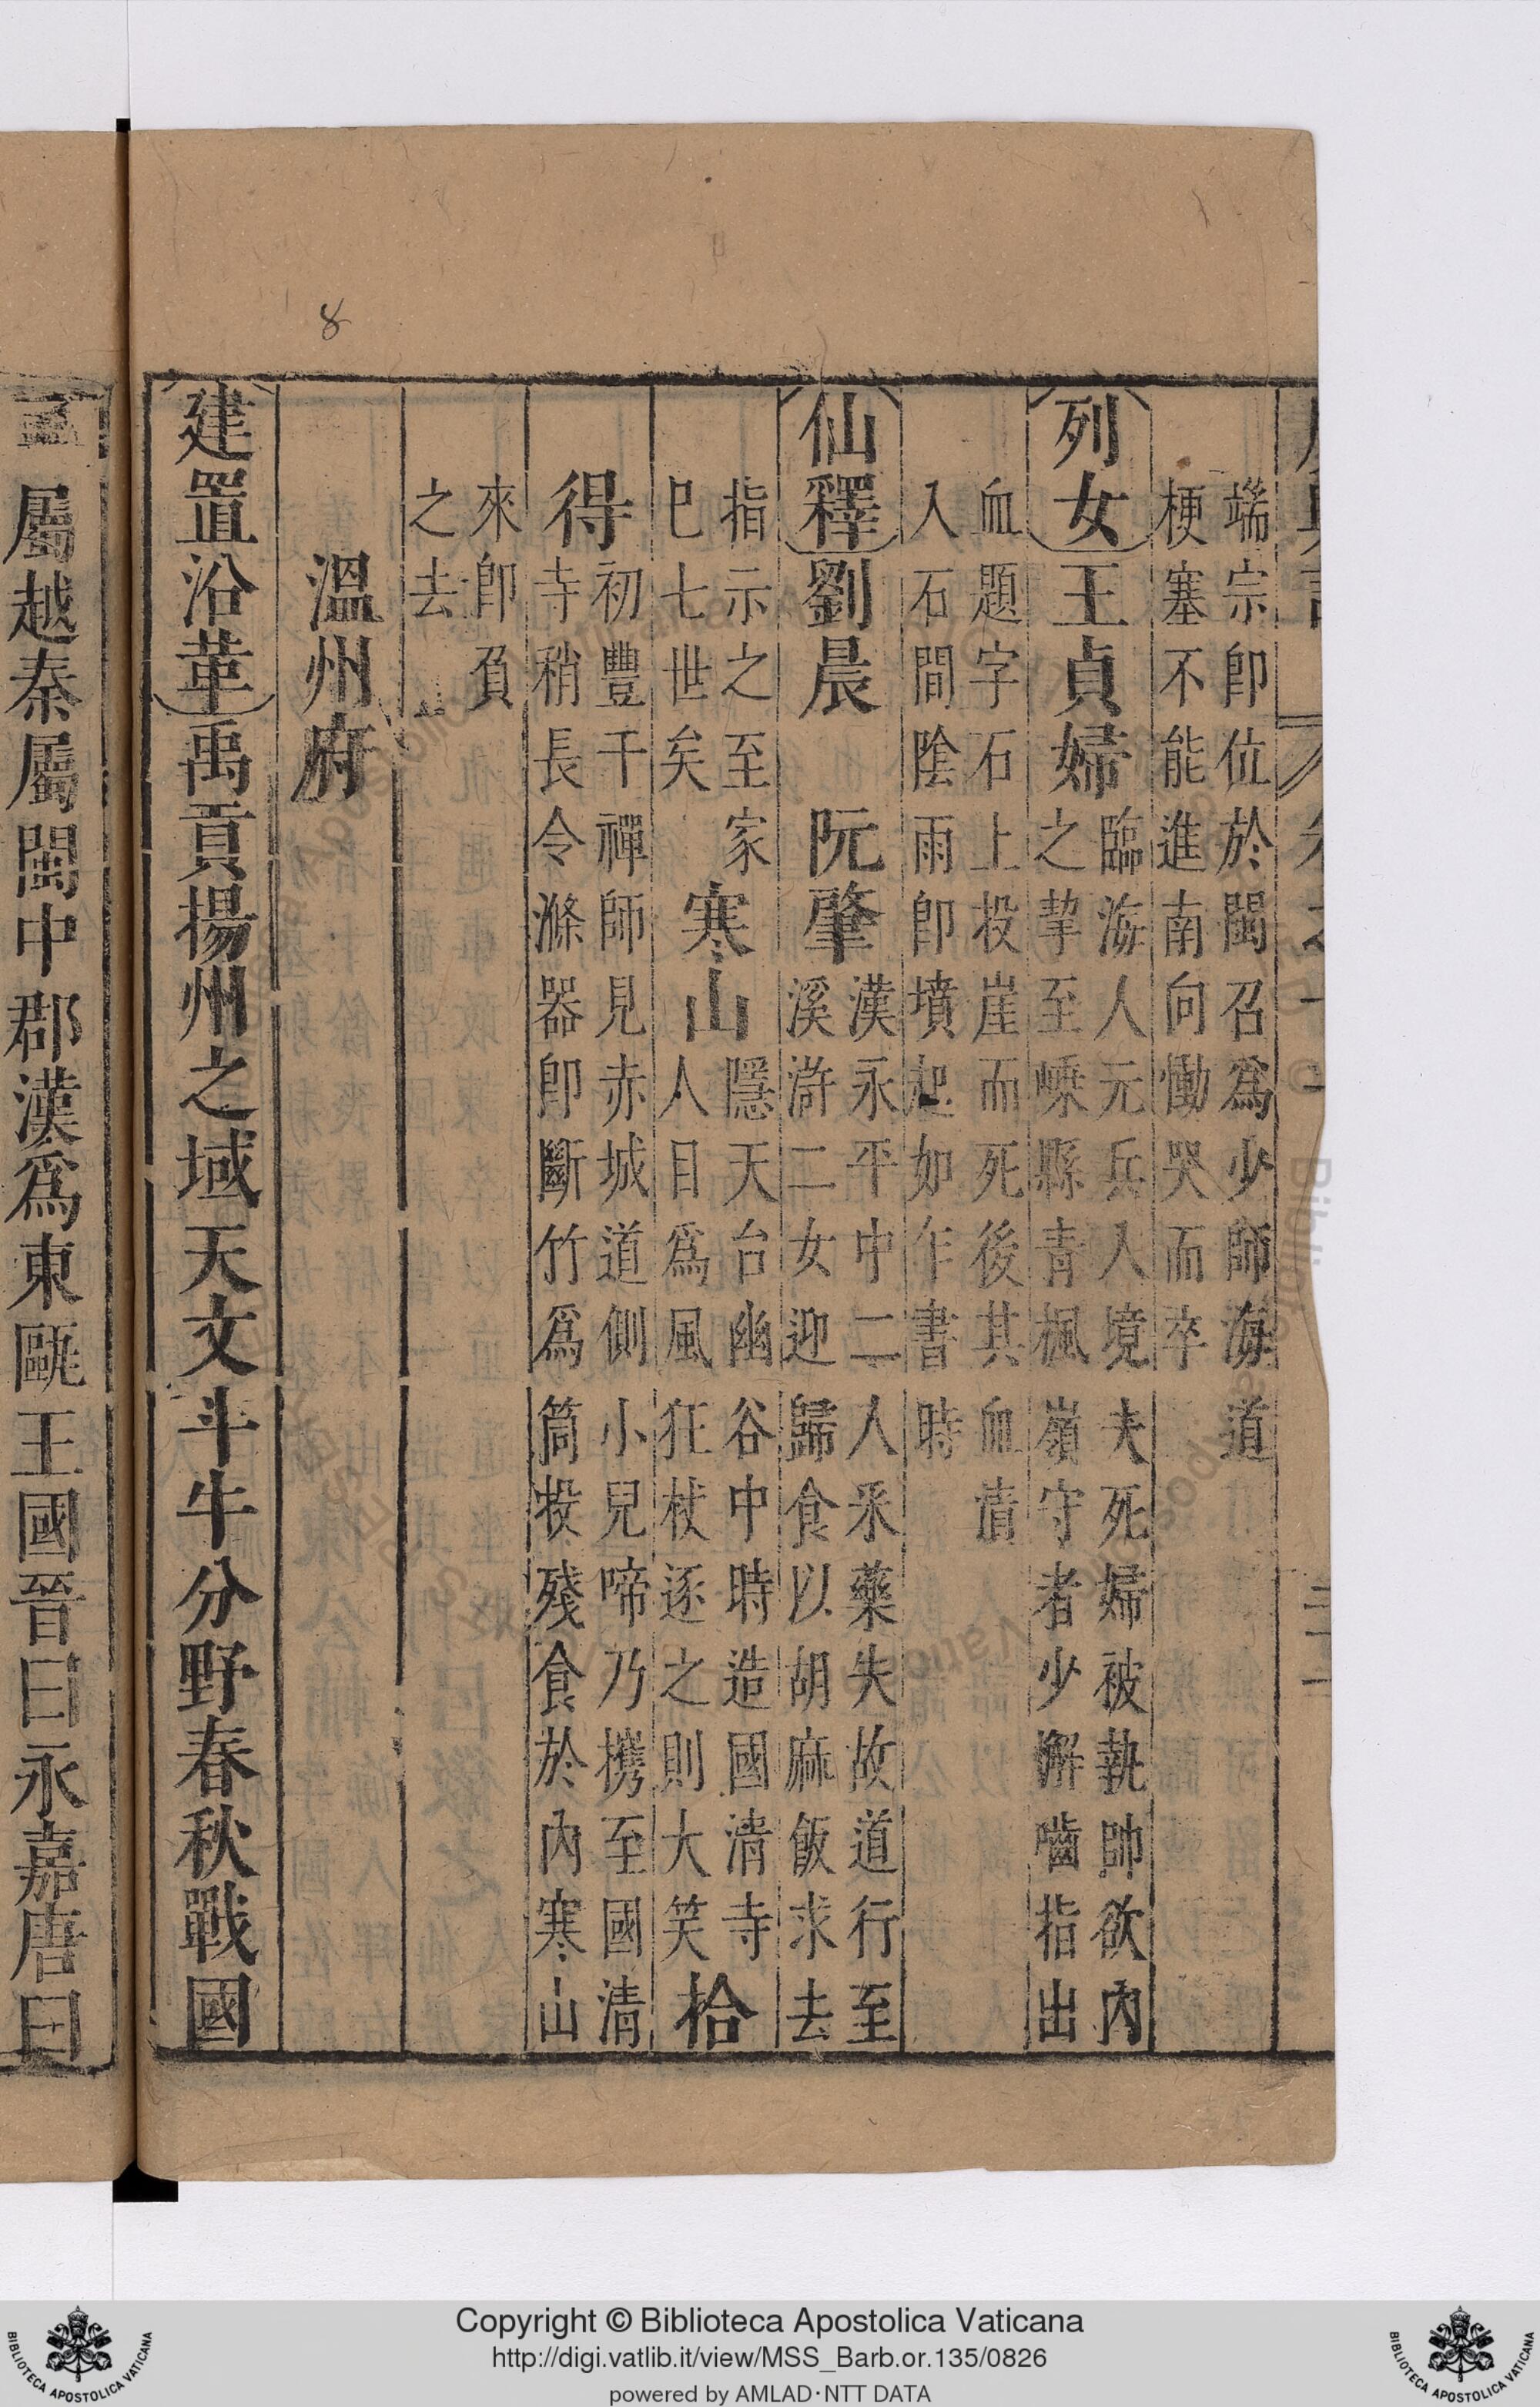 端宗卽位於閩召爲少師海道
梗塞不能進南向慟哭而卒
列女
王貞婦
臨海人元兵入境夫死婦被執帥欲內
之挈至嵊縣青楓嶺守者少懈嚙指出
血題字石上投崖而死後其血漬
入石間陰雨卽墳起如乍書時
仙釋
劉晨 阮肇
漢永平中二人采藥失故道行至
溪滸二女迎歸食以胡麻飯求去
指示之至家
巳七世矣
寒山
隱天台幽谷中時造國清寺
人目爲風狂杖逐之則大笑
拾
得
初豐干禪師見赤城道側小兒啼乃攜至國清
寺稍長令滌器卽斷竹爲筒投殘食於內寒山
來卽負
之去
溫州府
建置沿革
禹貢揚州之域天文斗牛分野春秋戰國
屬越秦屬閩中郡漢爲東甌王國晉曰永嘉唐曰
8
Copyright © Biblioteca Apostolica Vaticana
http://digi.vatlib.it/view/MSS_Barb.or.135/0826
powered by AMLAD·NTT DATA
BIBLIOTECA APOSTOLICA VATICANA
BIBLIOTECA APOSTOLICA VATICANA